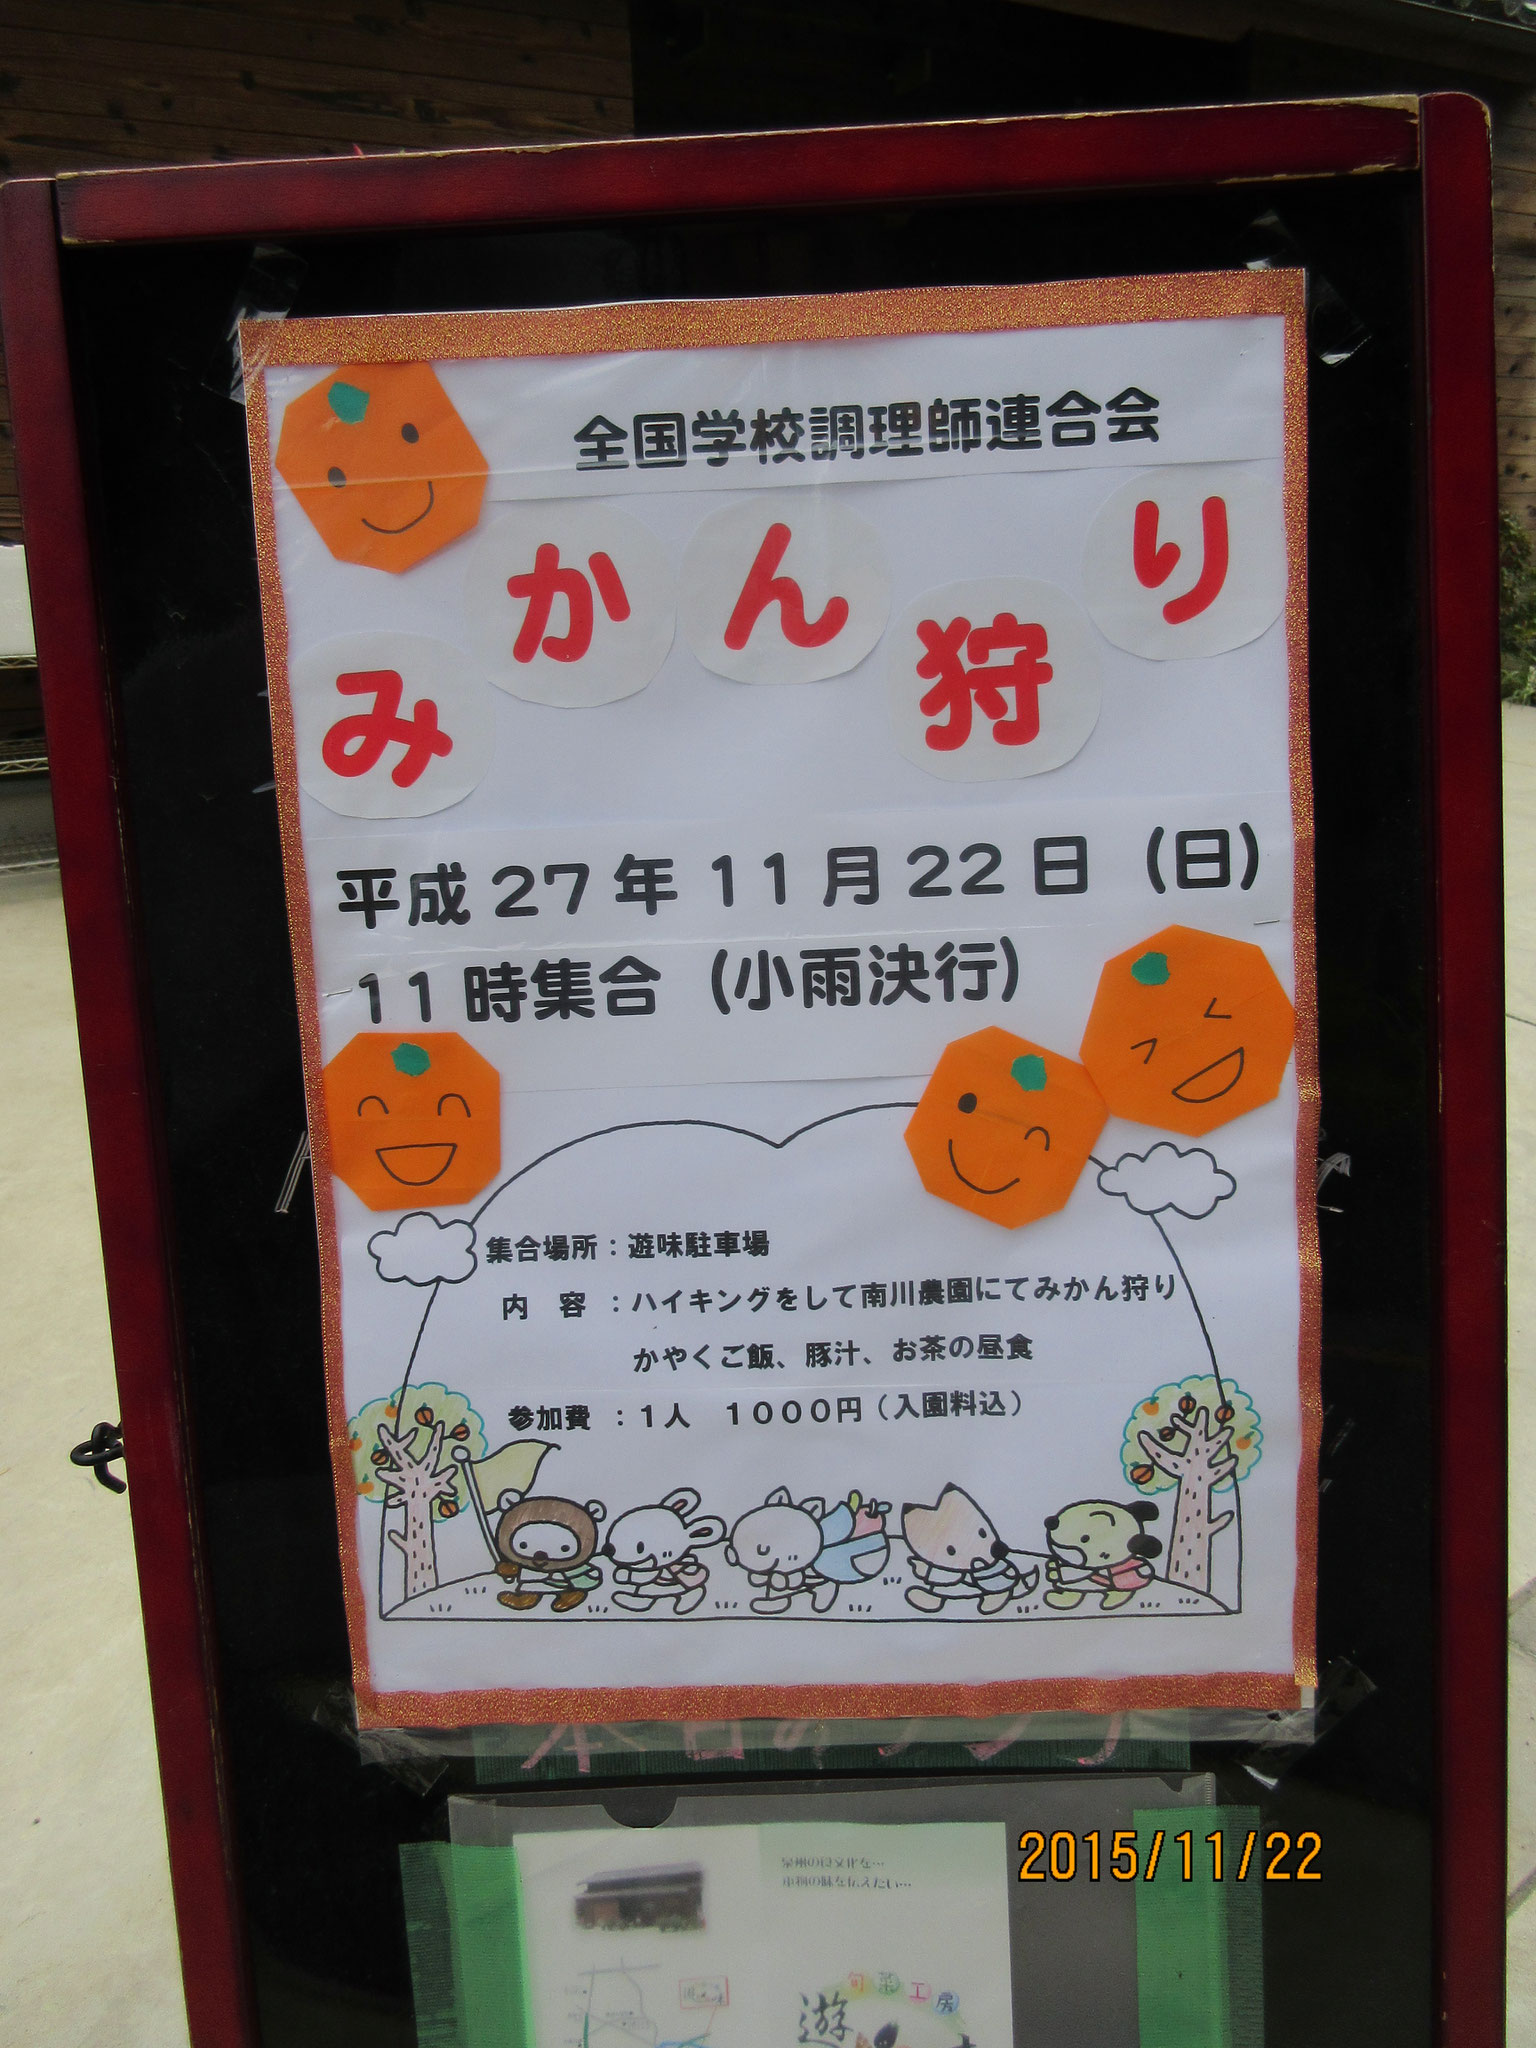 全国学校調理師連合会
みかん狩り
平成27年11月22日（日）
11時集合（小雨決行）
集合場所：遊味駐車場
内　容　：ハイキングをして南川農園にてみかん狩り
かやくご飯、豚汁、お茶の昼食
参加費　：1人　1000円（入園料込）
本日のランチ
泉州の食文化を…
の味を伝えたい…
旬菜工房
遊
2015/11/22